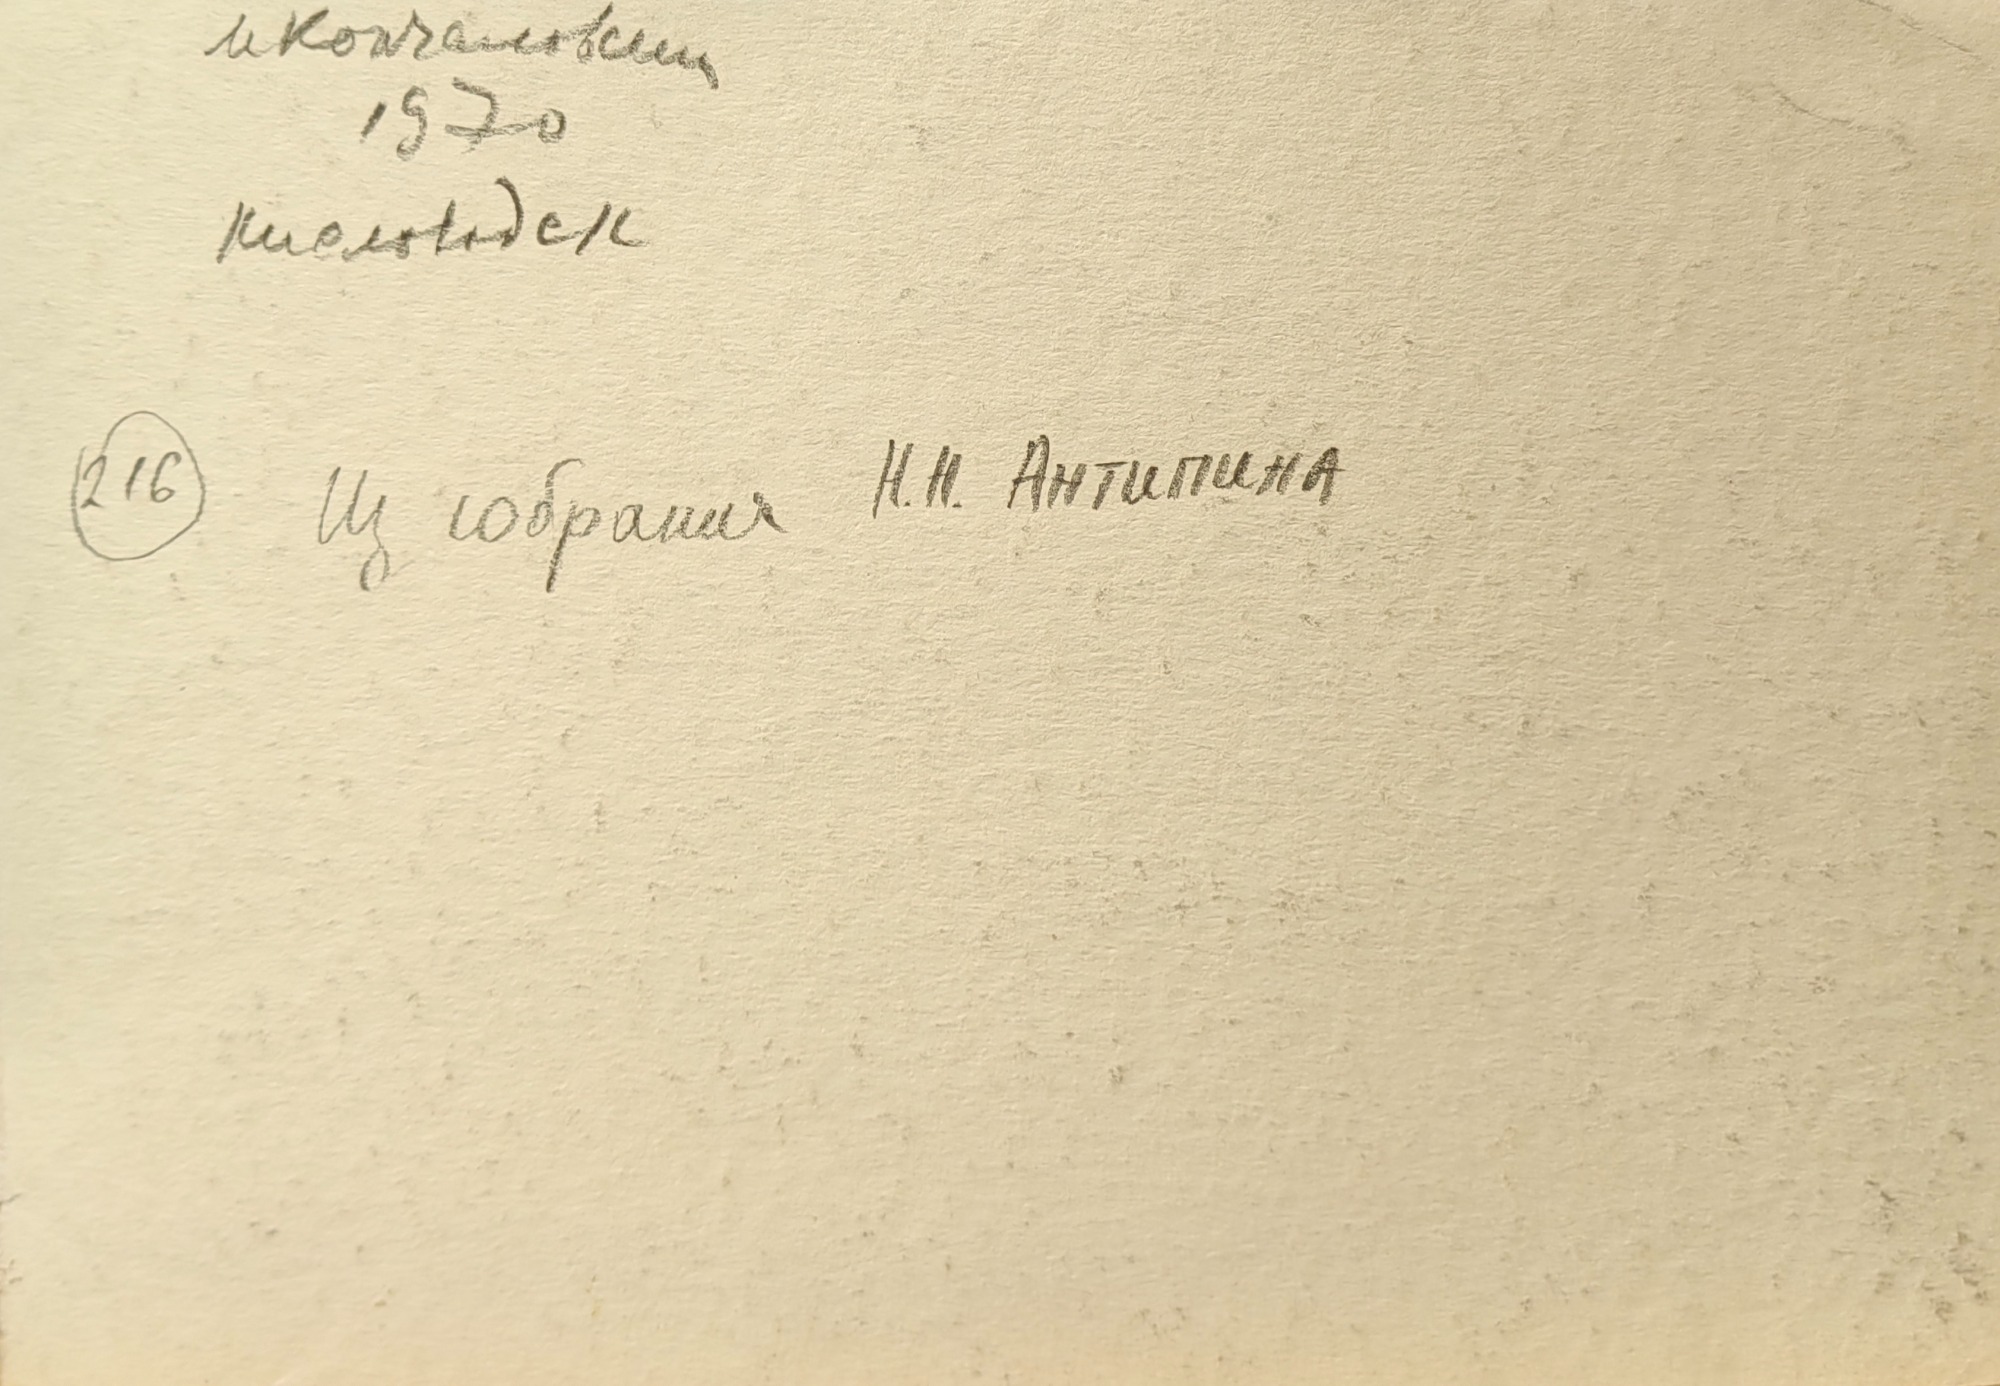 М Кончаловский
1970
Кисловодск
216 Из собрания Н.Н. Антипина